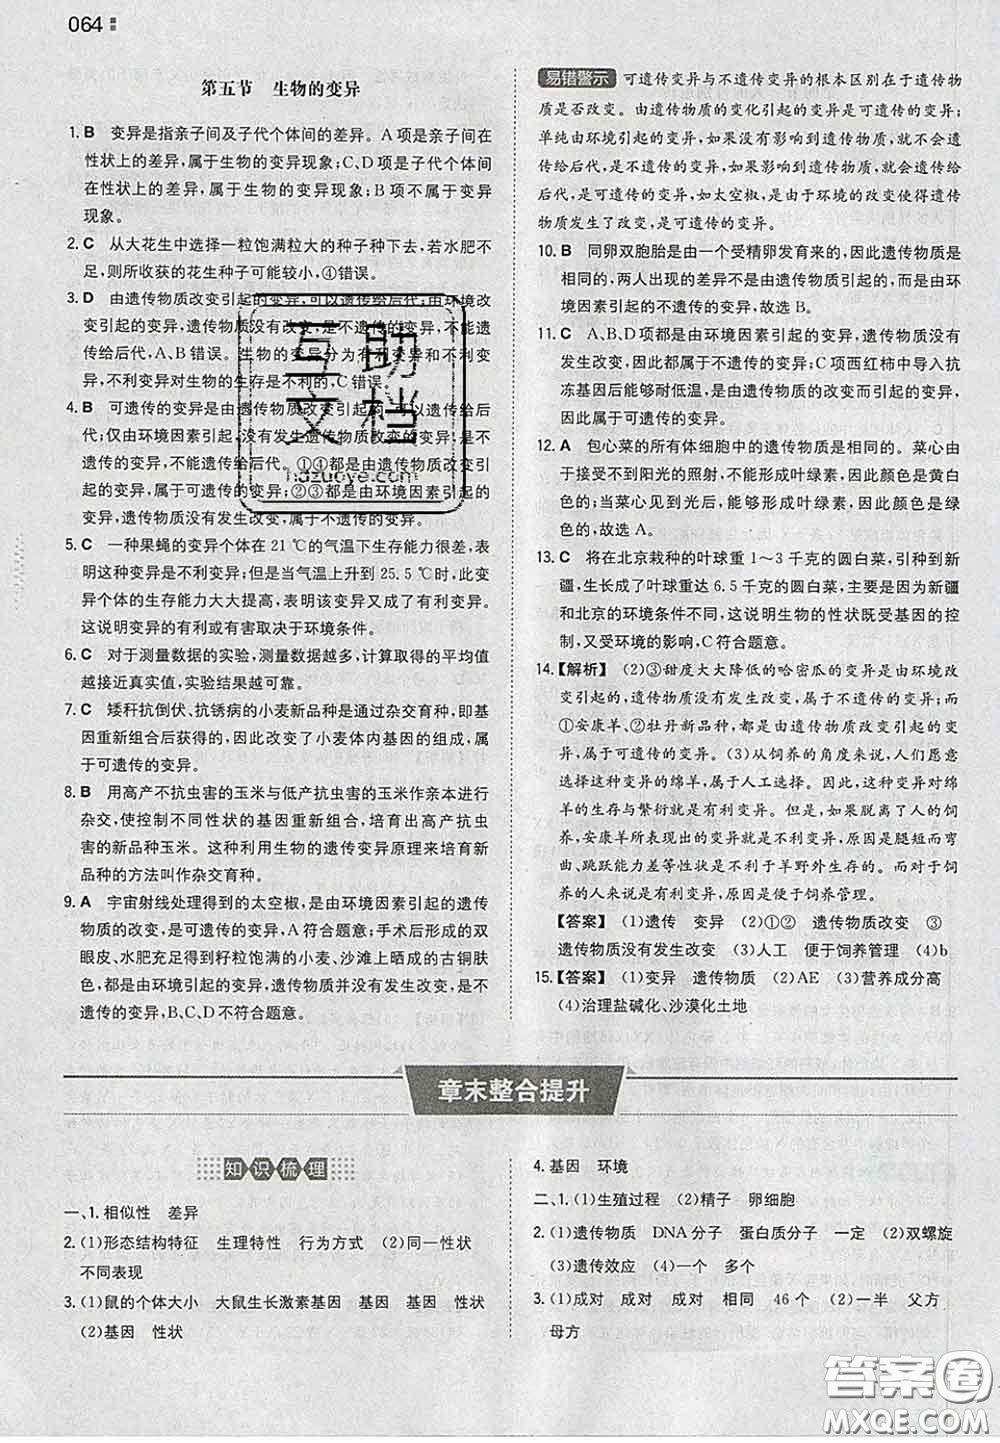 064
第五节　生物的变异
1. B　变异是指亲子间及子代个体间的差异。A 项是亲子间在
性状上的差异,属于生物的变异现象;C、D 项是子代个体间
在性状上的差异,属于生物的变异现象;B 项不属于变异
现象。
2. C　从大花生中选择一粒饱满粒大的种子种下去,若水肥不
足,则所收获的花生种子可能较小,④错误。
3. D　由遗传物质改变引起的变异,可以遗传给后代;由环境改
变引起的变异,遗传物质没有改变,是不遗传的变异,不能遗
传给后代,A、B 错误。生物的变异分为有利变异和不利变
异,不利变异对生物的生存是不利的,C 错误。
4. B　可遗传的变异是由遗传物质改变引起的,可以遗传给后
代;仅由环境因素引起,没有发生遗传物质改变的变异,是不
遗传的变异,不能遗传给后代。①④都是由遗传物质改变引
起的变异,属于可遗传变异;②③都是由环境因素引起的变异,
遗传物质没有发生改变,属于不遗传的变异。
5. C　一种果蝇的变异个体在 21 ℃的气温下生存能力很差,表
明这种变异是不利变异;但是当气温上升到 25.5 ℃时,此变
异个体的生存能力大大提高,表明该变异又成了有利变异。
这说明变异的有利或有害取决于环境条件。
6. C　对于测量数据的实验,测量数据越多,计算取得的平均值
越接近真实值,实验结果越可靠。
7. C　矮秆抗倒伏、抗锈病的小麦新品种是通过杂交育种,即基
因重新组合后获得的,因此改变了小麦体内基因的组成,属
于可遗传的变异。
8. B　用高产不抗虫害的玉米与低产抗虫害的玉米作亲本进行
杂交,使控制不同性状的基因重新组合,培育出高产抗虫
害的新品种玉米。这种利用生物的遗传变异原理来培育新
品种的方法叫作杂交育种。
9. A　宇宙射线处理得到的太空椒,是由环境因素引起的遗传
物质的改变,是可遗传的变异,A 符合题意;手术后形成的双
眼皮、水肥充足处获得籽粒饱满的小麦、沙滩上晒成的古铜肤
色,都是由环境因素引起的变异,遗传物质并没有发生改变,是不
遗传的变异,B、C、D 不符合题意。
易错警示　可遗传变异与不遗传变异的根本区别在于遗传物
质是否改变。由遗传物质的变化引起的变异是可遗传变异;
单纯由环境引起的变异,如果没有影响到遗传物质,就不会遗
传给后代,是不遗传的变异,如果影响到遗传物质,就会遗传
给后代,是可遗传的变异,如太空椒,是由于环境的改变使得遗传
物质发生了改变,是可遗传的变异。
10. B　同卵双胞胎是由一个受精卵发育来的,因此遗传物质是
相同的,两人出现的差异不是由遗传物质引起的,而是由环
境因素引起的不遗传的变异,故选 B。
11. C　A、B、D 项都是由环境因素引起的变异,遗传物质没有
发生改变,因此都属于不遗传的变异;C 项西红柿中导入抗
冻基因后能够耐低温,是由于遗传物质的改变而引起的变异,
因此属于可遗传的变异。
12. A　包心菜的所有体细胞中的遗传物质是相同的。菜心由
于接受不到阳光的照射,不能形成叶绿素,因此颜色是黄白
色的;当菜心见到光后,能形成叶绿素,因此颜色是绿
色的,故选 A。
13. C　将在北京栽种的叶球重 1～3 千克的圆白菜,引种到新
疆,生长成了叶球重达 6.5 千克的圆白菜,主要是因为新疆
和北京的环境条件不同,这说明生物的性状既受基因的控
制,又受环境的影响,C 符合题意。
14.【解析】　(2)③甜度大大降低的哈密瓜的变异是由环境改
变引起的,遗传物质没有发生改变,属于不遗传的变异;而
①安康羊、②牡丹新品种,都是由遗传物质改变引起的变
异,属于可遗传的变异。(3)从饲养的角度来说,人们愿意
选择这种变异的绵羊,属于人工选择。因此,这种变异对绵
羊的生存与繁衍就是有利变异。但是,如果脱离了人的饲
养,安康羊所表现出的变异就是不利变异,原因是腿短而弯
曲、跳跃能力差等性状不利于羊野外生存的。而对于饲
养的人来说是有利变异,原因是便于饲养管理。
【答案】　(1)遗传　变异　(2)①②　遗传物质改变　③
遗传物质没有发生改变　(3)人工　便于饲养管理　(4)b
15.【答案】　(1)变异　遗传物质　(2)AE　(3)营养成分高
(4)治理盐碱化、沙漠化土地
章末整合提升
知识梳理
一、1. 相似性　差异
2. (1)形态结构特征　生理特性　行为方式　(2)同一性状
不同表现
3. (1)鼠的个体大小　大鼠生长激素基因　基因　基因　性状
(2)基因　性状
4. 基因　环境
二、1. (1)生殖过程　(2)精子　卵细胞
2. (1)遗传物质　DNA分子　蛋白质分子　一定　(2)双螺旋
(3)遗传效应　(4)一个　多个
3. (1)成对　成对　成对　相同　46 个　(2)一半　父方
母方
互助
文档
hdzuoye.com
答案圈
MXQE.COM